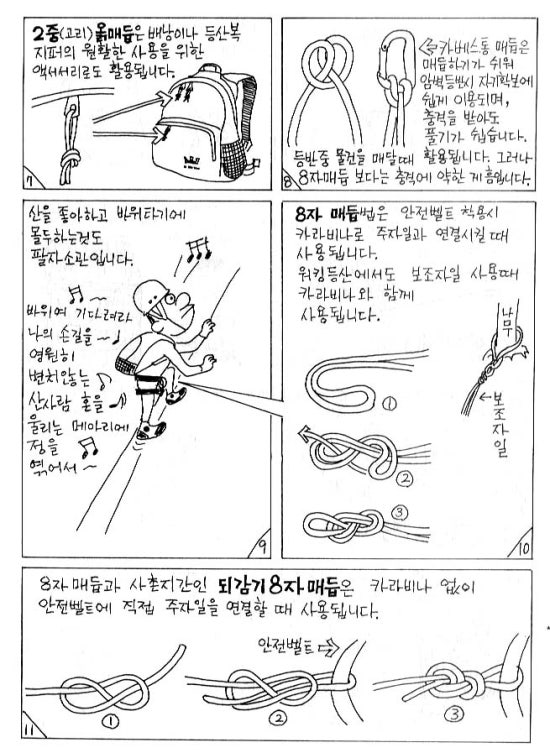 2중(고리) 옭매듭은 배낭이나 등산복
지퍼의 원활한 사용을 위한
액세서리로도 활용됩니다.
7
⇦카베스통 매듭은
매듭하기가 쉬워
암벽등반시 자기확보에
쉽게 이용되며,
충격을 받아도
풀기가 쉽습니다.
등반중 물건을 매달때 활용됩니다. 그러나
8자매듭 보다는 충격에 약한 게 흠입니다.
8
산을 좋아하고 바위타기에
몰두하는것도
팔자소관입니다.
바위여 기다려라
나의 손길을~
영원히
변치않는
산사람 혼을
울리는 메아리에
정을
엮어서~
9
8자 매듭법은 안전벨트 착용시
카라비나로 주자일과 연결시킬 때
사용됩니다.
워킹등산에서도 보조자일 사용때
카라비나와 함께
사용됩니다.
나무
←보조자일
①
②
③
10
8자매듭과 사촌지간인 되감기8자매듭은 카라비나 없이
안전벨트에 직접 주자일을 연결할 때 사용됩니다.
안전벨트⇨
①
②
③
11